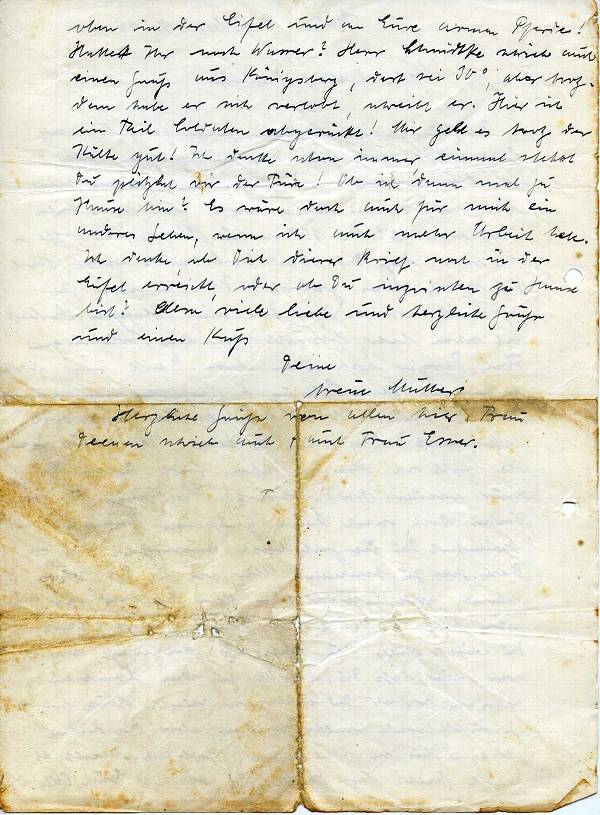 oben in der Eifel und an Eure armen Pferde!
Hattet Ihr noch Wasser? Herr Schmidtke schrieb auch
einen Gruß aus Königsberg, dort sei 30°, aber trotz-
dem habe er sich verlobt, schreibt er. Hier ist
ein Teil Soldaten abgerückt! Mir geht es trotz der
Kälte gut! Ich denke schon immer einmal stehst
Du plötzlich vor der Türe! Ob ich denn mal zu
Hause bin? Es wäre doch auch für mich ein
anderes Leben, wenn ich auch mehr Arbeit habe.
Ich denke ob Dich dieser Brief noch in der
Eifel erreicht, oder ob Du inzwischen zu Hause
bist? viele liebe und herzliche Grüße
und einen Kuß
Deine
treue Mutter
Herzliche Grüße von allen hier. Frau
schrieb auch + auch Frau Esser.